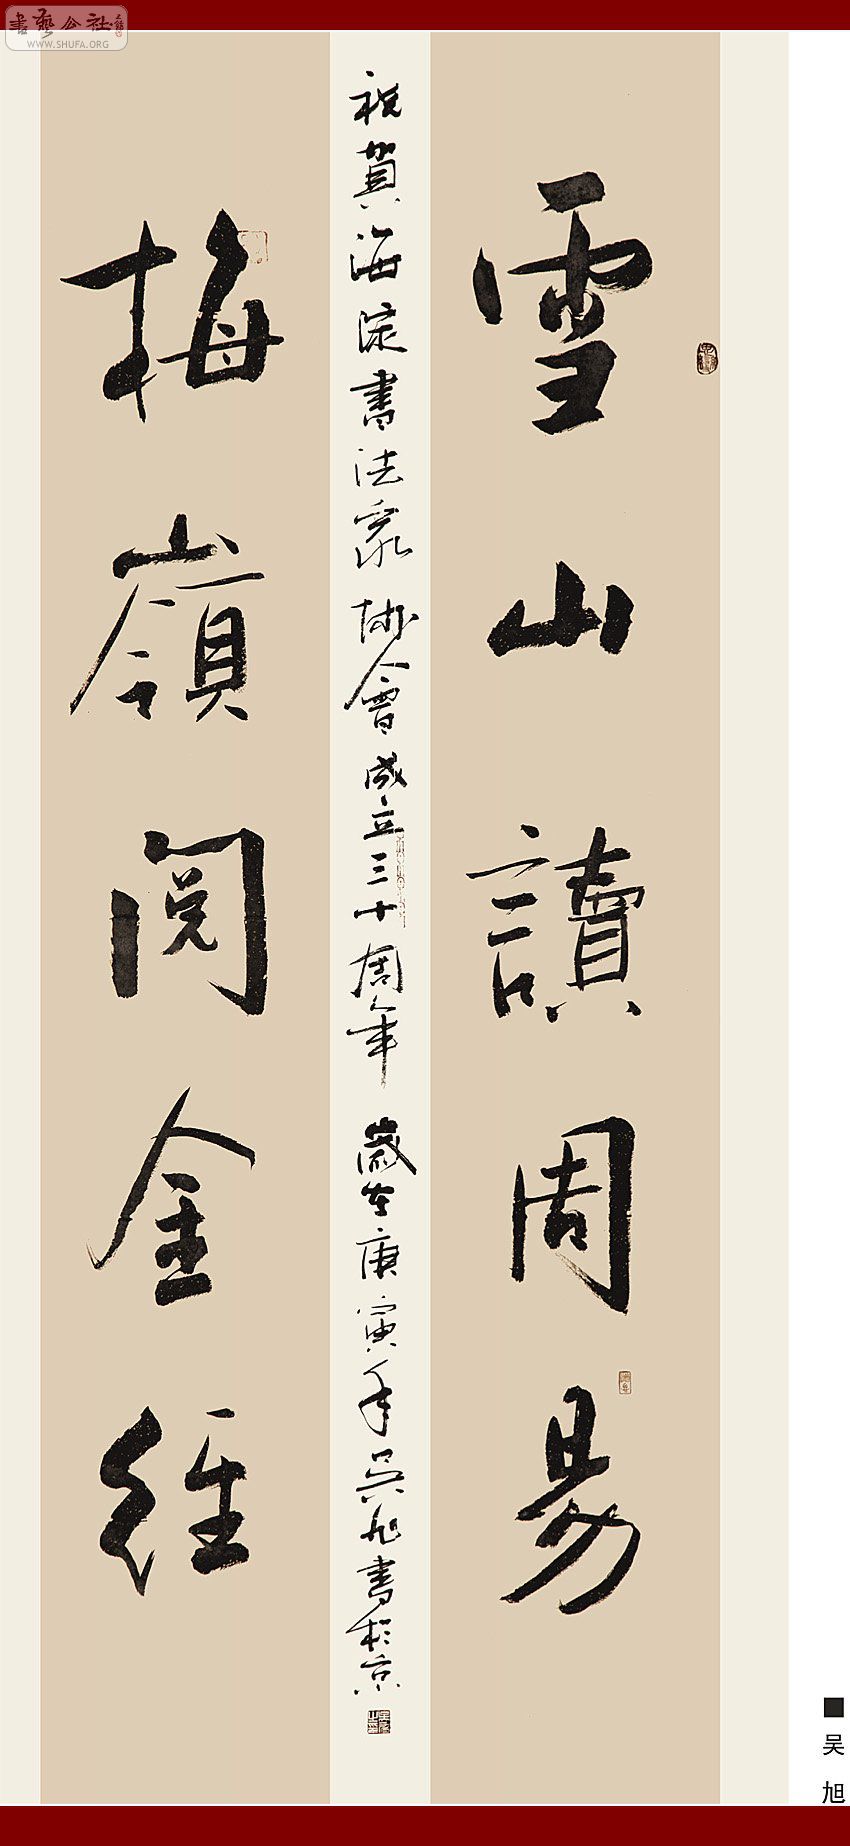 書藝公社
WWW.SHUFA.ORG
雪山讀周易
祝賀海淀書法家協會成立三十周年 歲在庚寅年吳旭書於京
梅嶺閱金經
■吴旭